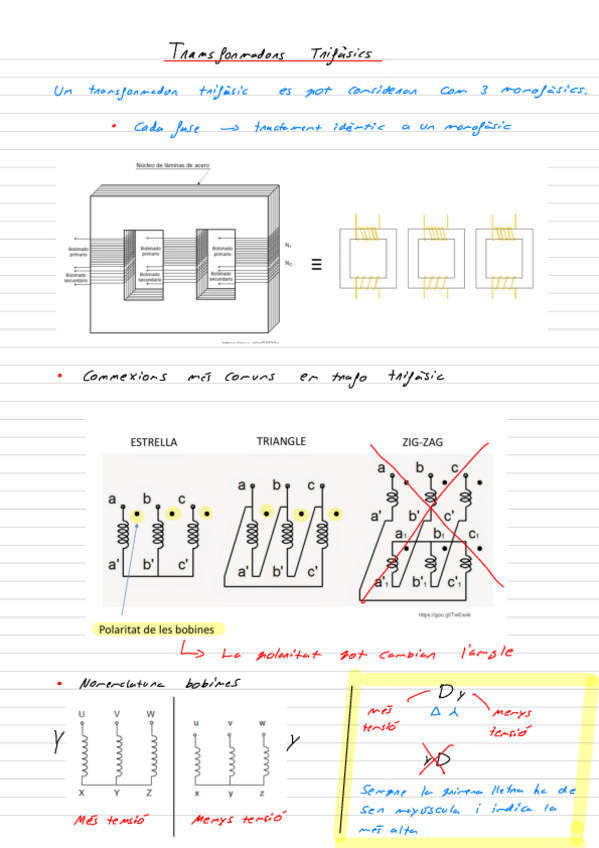 Transformadors Trifàsics
Un transformador trifàsic es pot considerar com 3 monofàsics.
• Cada fase → tractament idèntic a un monofàsic
Núcleo de láminas de acero
Bobinado primario
Bobinado secundario
Bobinado primario
Bobinado secundario
Bobinado primario
Bobinado secundario
N₁
N₂
≡
• Connexions més comuns en trafo trifàsic
ESTRELLA TRIANGLE ZIG-ZAG
a b c a b c a b c
a' b' c'
a₁ b₁ c₁
a' b' c' a' b' c' a'₁ b'₁ c'₁
https://goo.gl/TwEwxk
Polaritat de les bobines
↳ La polaritat pot cambiar l'angle
• Nomenclatura bobines
U V W u v w
Y Y
X Y Z x y z
Més tensió Menys tensió
Dy
més tensió Δ menys tensió
yD
Sempre la primera lletra ha de
ser mayúscula i indica la
més alta